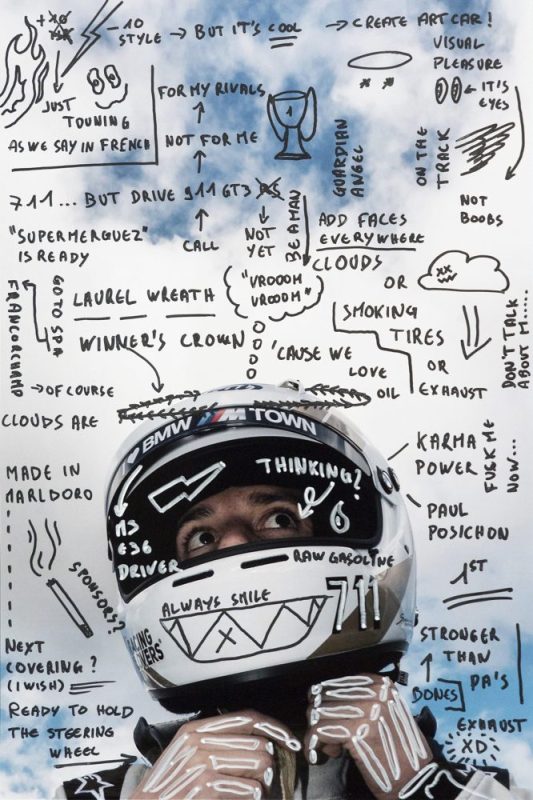 +10
-10
STYLE → BUT IT'S COOL → CREATE ARTCAR!
VISUAL
PLEASURE
IT'S
EYES
NOT
BOOBS
JUST
TOUNING
AS WE SAY IN FRENCH
FOR MY RIVALS
NOT FOR ME
1
GUARDIAN
ANGEL
ON THE
TRACK
711... BUT DRIVE 911 GT3 RS
CALL
NOT
YET
BE A MAN
"SUPERMERGUEZ"
IS READY
ADD FACES
EVERYWHERE
CLOUDS
OR
SMOKING
TIRES
OR
EXHAUST
"VROOOM
VROOOM"
GO TO SPA
FRANCORCHAMP
LAUREL WREATH
WINNER'S CROWN
'CAUSE WE
LOVE
OIL
DON'T TALK
ABOUT M.....
→ OF COURSE
CLOUDS ARE
MADE IN
MARLBORO
SPONSORS?
BMW M TOWN
THINKING?
6
M3
E36
DRIVER
RAW GASOLINE
ALWAYS SMILE
711
RACING
COVERS
KARMA
POWER
FUSK ME
NOW...
PAUL
POSICHON
1ST
STRONGER
THAN
PA'S
BONES
EXHAUST
XD
NEXT
COVERING?
(I WISH)
READY TO HOLD
THE STEERING
WHEEL